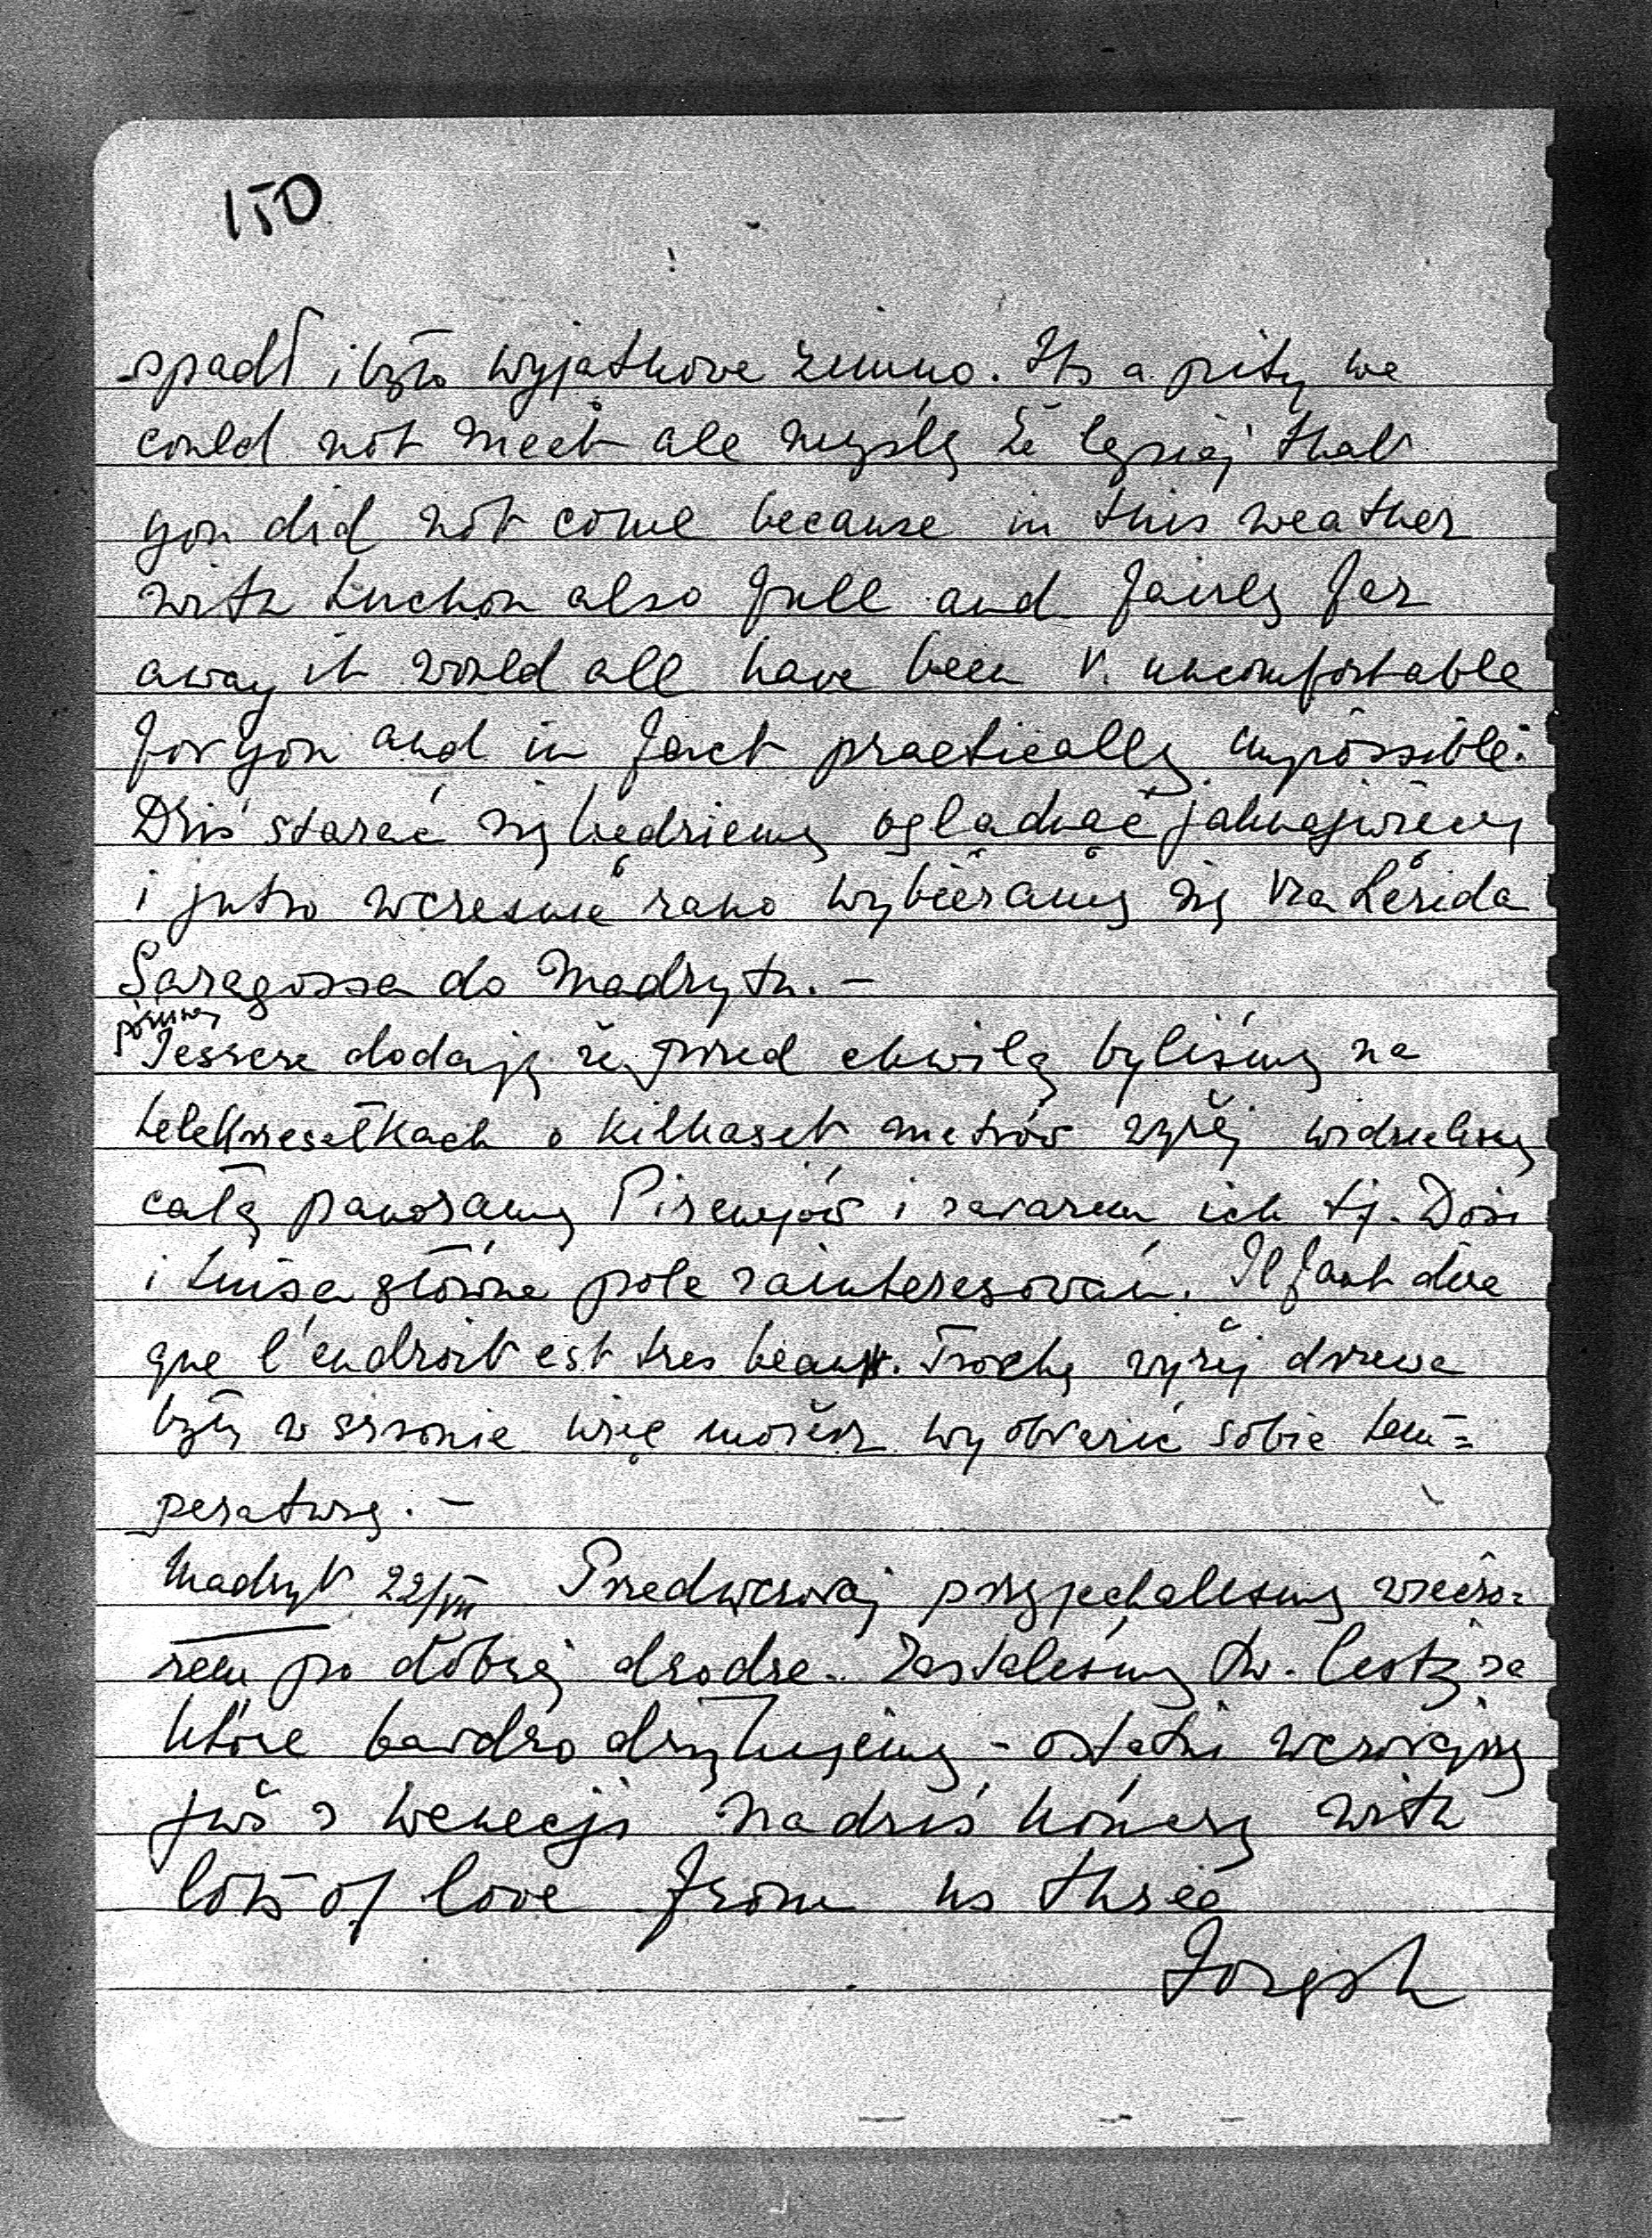 150
spadł i było wyjątkowe zimno. Its a pity we
could not meet ale myślę że lepiej that
you did not come because in this weather
with Luchon also full and fairly far
away it would all have been v. uncomfortable
for you and in fact practically impossible.
Dziś starać się będziemy oglądnąć jaknajwięcej
i jutro wcześnie rano wybieramy się via Lerida
Saragossa do Madrytu. –
później
Jeszcze dodaję że przed chwilą byliśmy na
telekrzesełkach o kilkaset metrów wyżej widzieliśmy
całą panoramę Pirenejów i zarazem ich tj. Dosi
i Luisa główne pole zainteresowań. Il faut dire
que l'endroit est tres beau. Trochę wyżej drzewa
były w szronie więc możesz wyobrazić sobie tem=
peraturę. –
Madryt 22/VII Przedwczoraj przyjechalismy wieczo=
rem po dobrej drodze. Zastaliśmy dw. listy za
które bardzo dziękujemy – ostatni wczorajszy
już z Wenecji Na dziś kończę with
lots of love from us three
Joseph